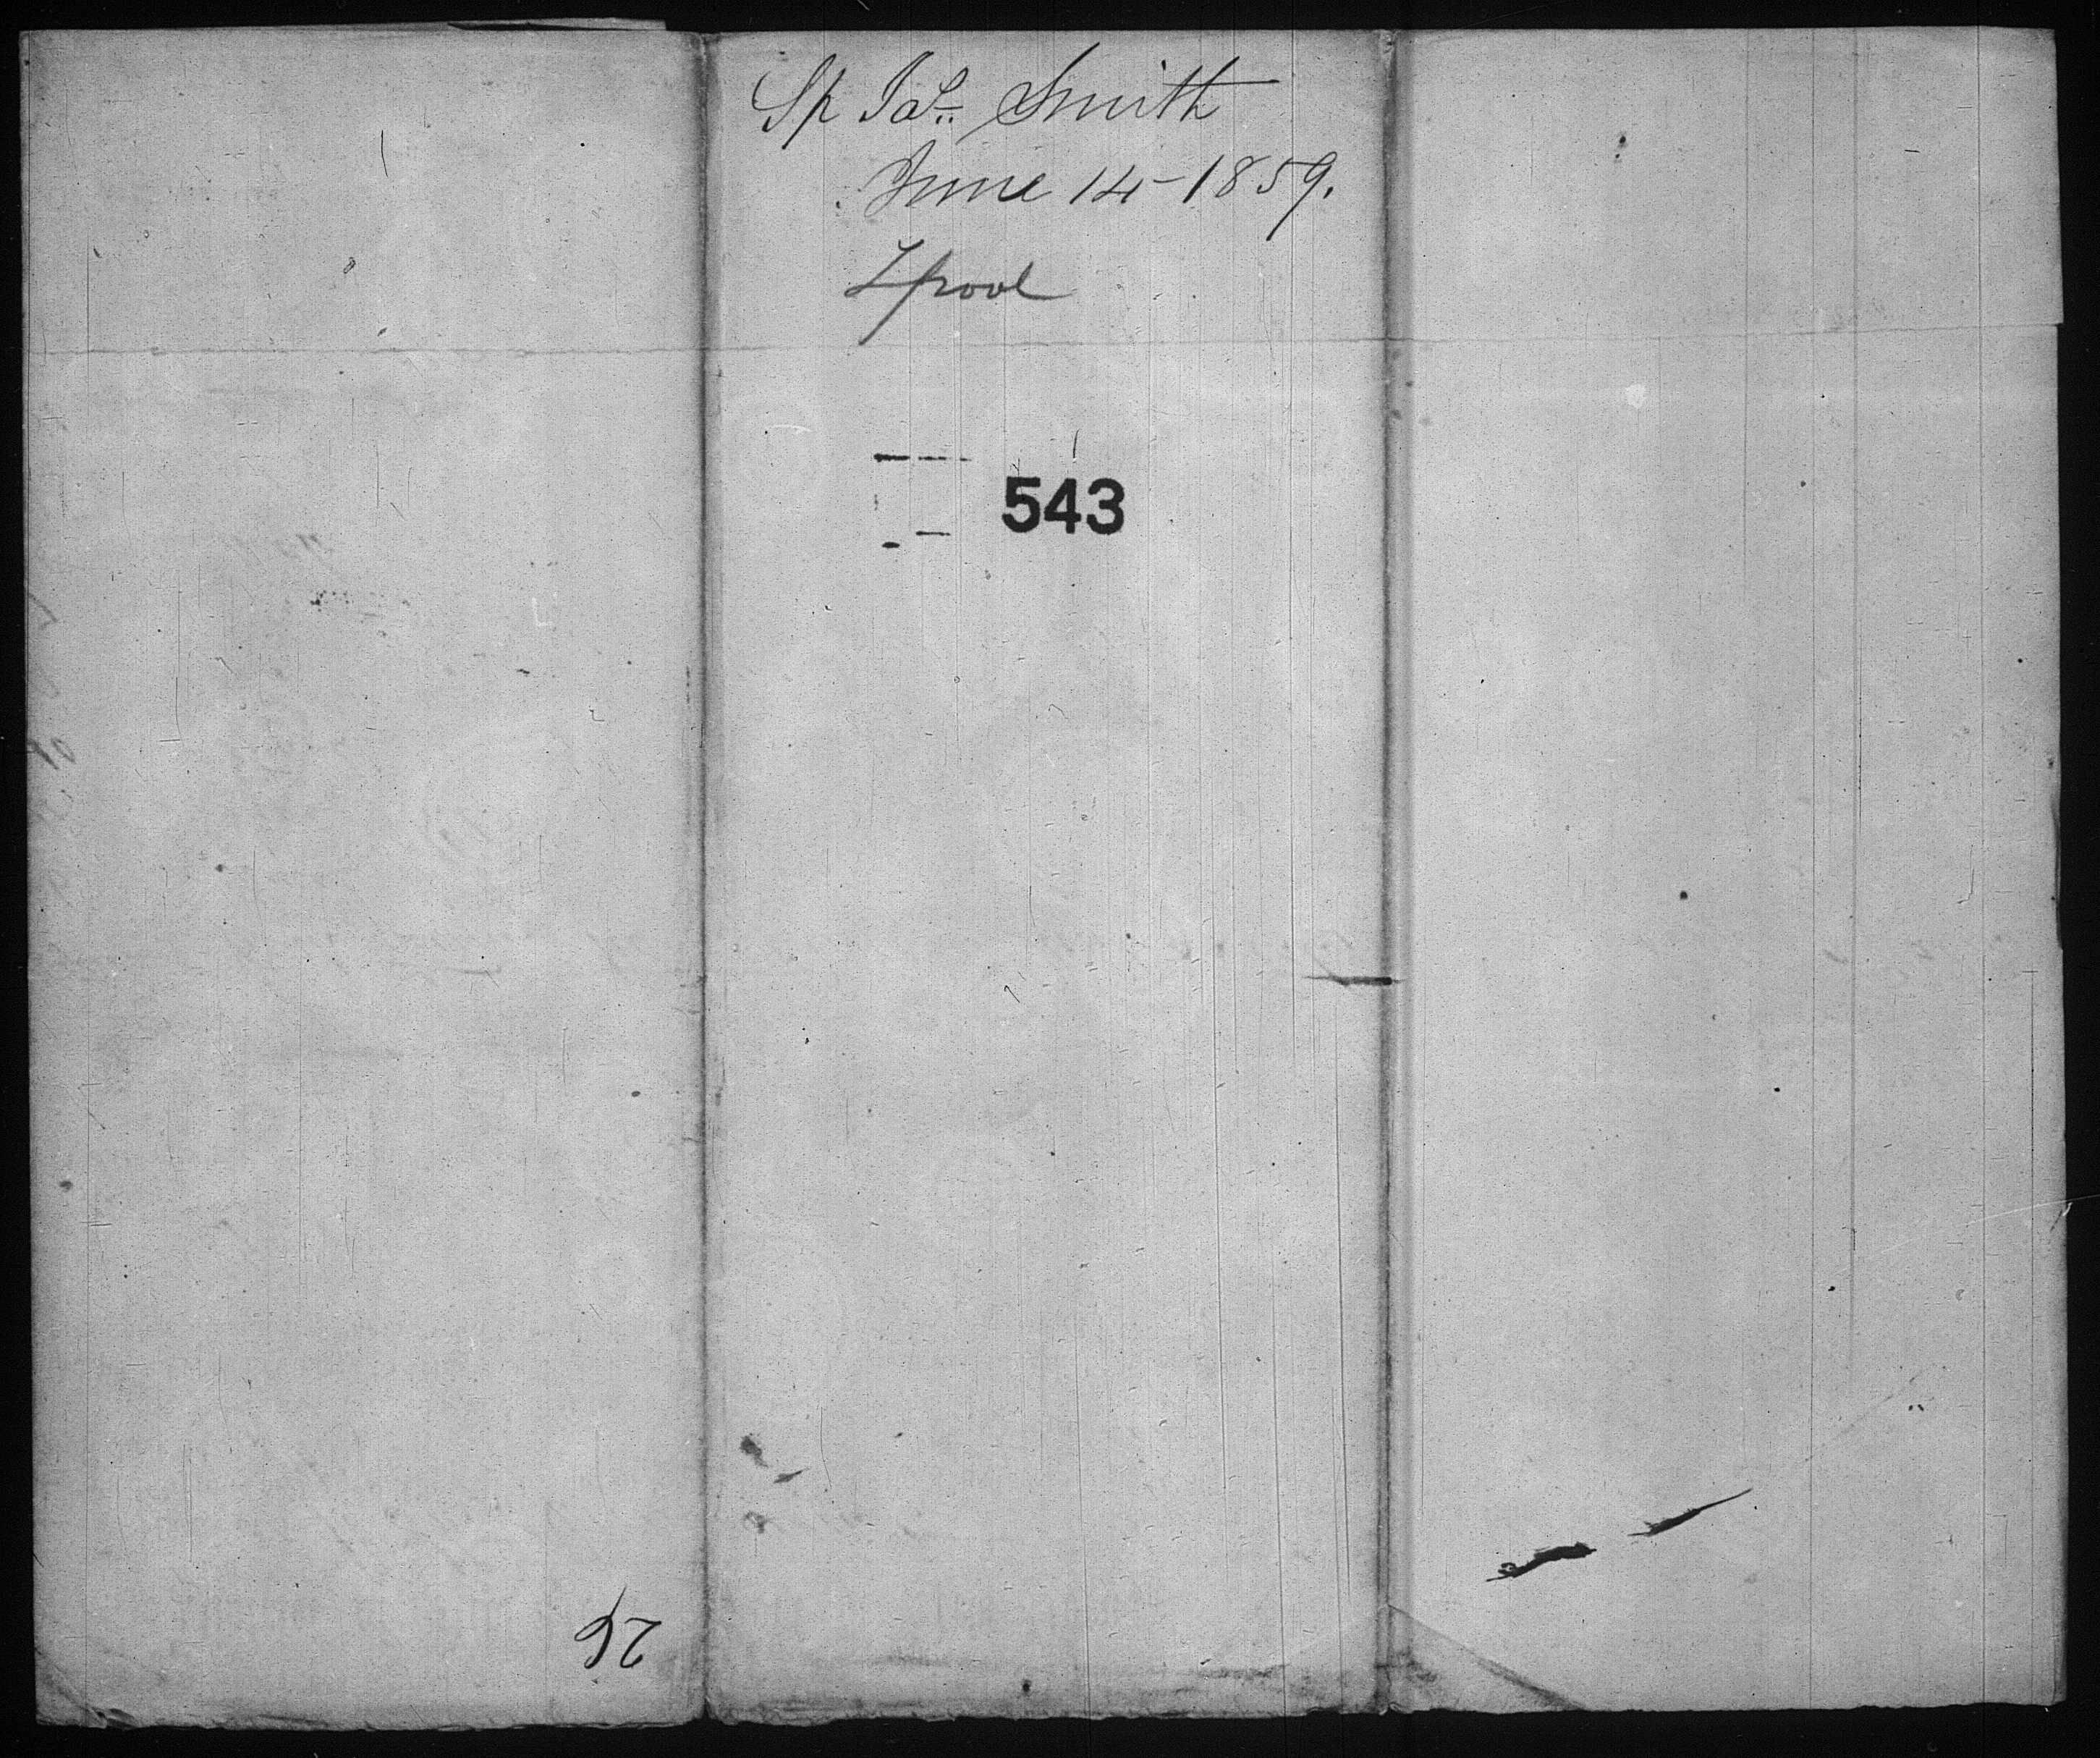 Sp Jas. Smith
June 14-1859.
Lpool
543